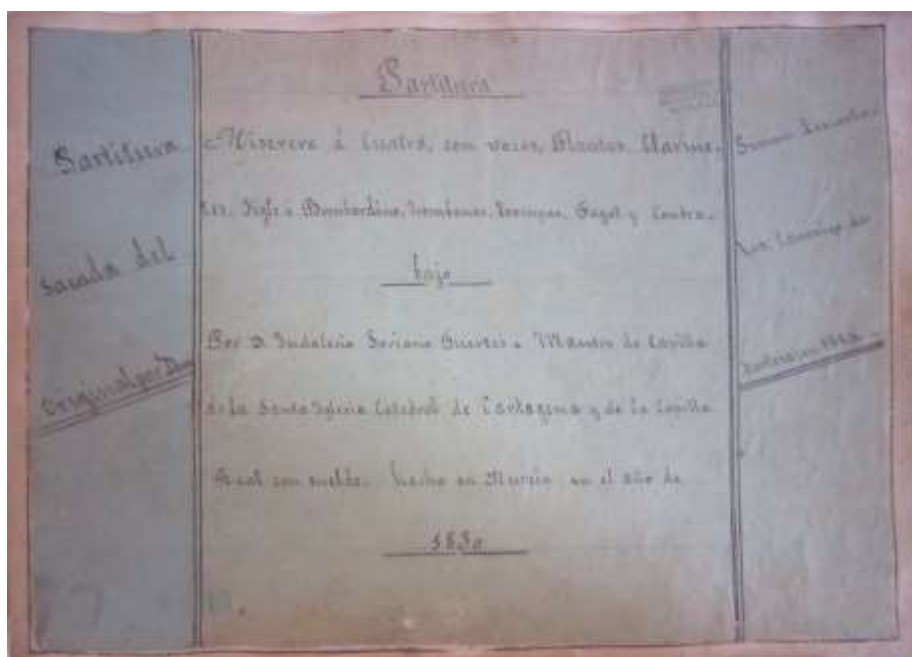 Partitura
sacada del
original por Don
Partitura
Miserere á Cuatro, con voces, Flautas, Clarine-
tes, Figle o Bombardino, Trombones, Trompas, Fagot y Contra-
bajo
Por D Indalecio Soriano Fuertes Maestro de Capilla
de la Santa Iglesia Catedral de Cartagena y de la Capilla
Real con sueldo. hecho en Murcia en el año de
1830